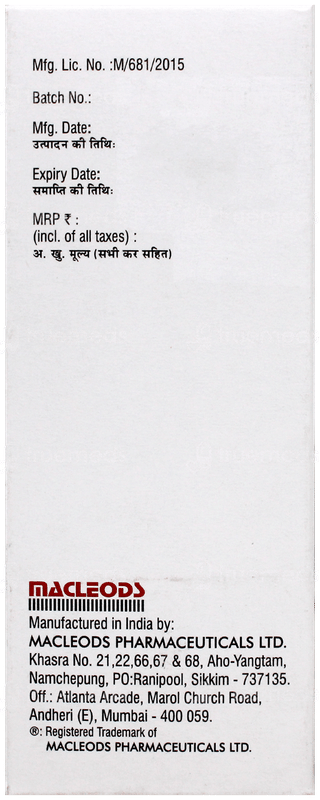 Mfg. Lic. No. :M/681/2015
Batch No.:
Mfg. Date:
उत्पादन की तिथि:
Expiry Date:
समाप्ति की तिथि:
MRP ₹ :
(incl. of all taxes) :
अ. खु. मूल्य (सभी कर सहित)
MACLEODS
Manufactured in India by:
MACLEODS PHARMACEUTICALS LTD.
Khasra No. 21,22,66,67 & 68, Aho-Yangtam,
Namchepung, PO:Ranipool, Sikkim - 737135.
Off.: Atlanta Arcade, Marol Church Road,
Andheri (E), Mumbai - 400 059.
®: Registered Trademark of
MACLEODS PHARMACEUTICALS LTD.